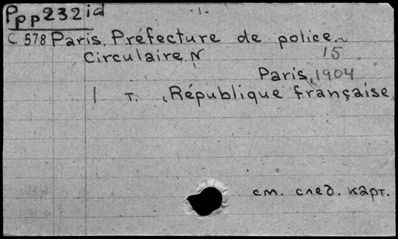 Ppp232id -1-
C 578 Paris. Préfecture de police.
Circulaire. N 15
Paris, 1904
1 т. République française
см. след. карт.